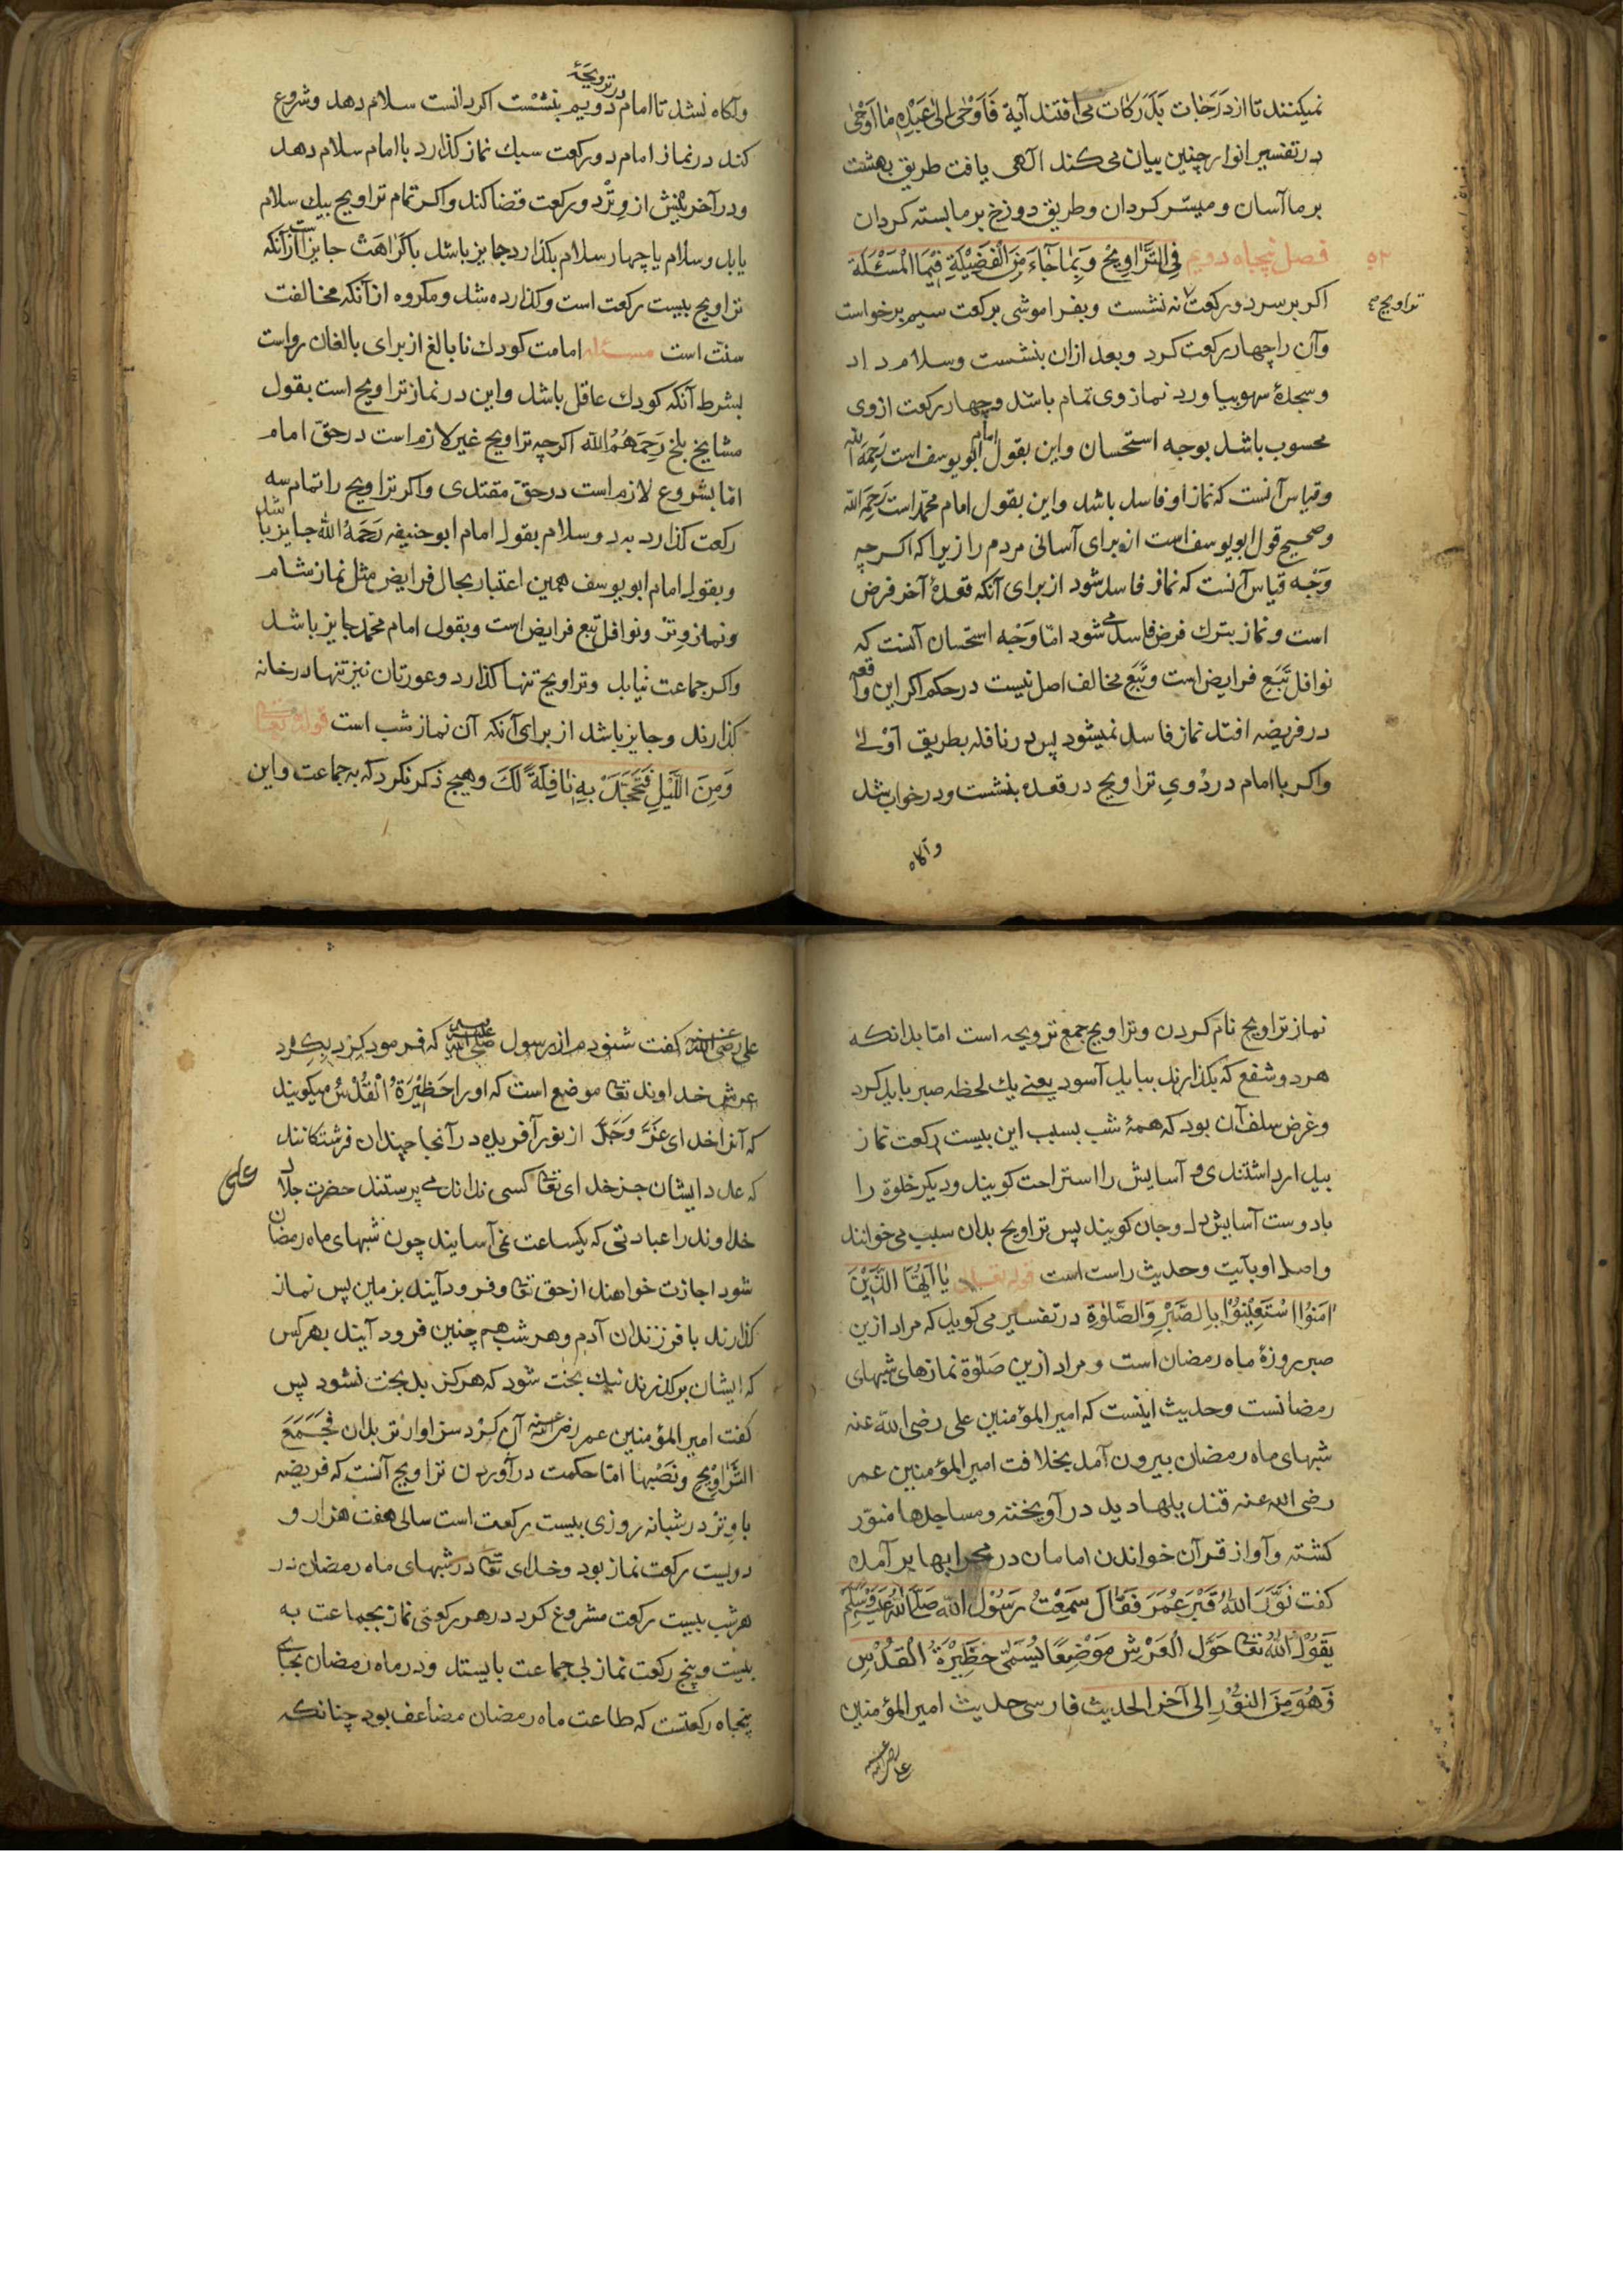 نمیکنند تا از دَرَجَات بَدَرَکات می افتند آیة فَاَوْحٰی اِلیٰ عَبْدِهٖ مٰا اَوْحٰی
در تفسیر انوار چنین بیان می کند الٓهی یافت طریق بهشت
بر ما آسان و میسّر کردان وطریق دوزخ بر ما بسته کردان
۵۲ فصل پنجاه دویم فِی التَّرٰاوِیْحِ وَبِمٰا جَآءَ مِنَ الْفَضِیْلَةِ فِیْمَا الْمَسْئَلَة
تراویح
اکر بر سر دو رکعت نه نشست وبفراموشی برکعت سیم برخواست
وآن را چهار رکعت کرد وبعد ازان بنشست وسلام داد
وسجدۀ سهو بیاورد نماز وی تمام باشد وچهار رکعت ازوی
محسوب باشد بوجه استحسان واین بقول امام ابو یوسف است رَحِمَهُ الله
وقیاس آنست که نماز او فاسد باشد واین بقول امام محمّد است رَحِمَهُ الله
وصحیح قول ابو یوسف است از برای آسانی مردم را زیرا که اکرچه
وَجْه قیاس آنست که نماز فاسد شود از برای آنکه قعدۀ آخر فرض
است ونماز بترک فرض فاسد می شود امّا وَجْه استحسان آنست که
نوافل تَبَعِ فرایض است وتَبَع مخالف اصل نیست در حکم اکر این واقعه
در فریضه افتد نماز فاسد نمیشود پس در نافله بطریق اَوْلیٰ
واکر با امام در دُویِ تراویح در قعده بنشست ودر خواب شد
وآکاه
وآکاه نشد تا امام در ترویحۀ دویم بنشست اکر دانست سلام دهد وشروع
کند در نماز امام دو رکعت سبک نماز کذارد با امام سلام دهد
ودر آخر پیش از وِتْر دو رکعت قضا کند واکر تمام تراویح بیک سلام
یا بدو سلام یا چهار سلام بکذارد جایز باشد با کَرٰاهَتْ جایز است از آنکه
تراویح بیست رکعت است وکذارده شد ومکروه از آنکه مخالفت
سنّت است مسئله امامت کودک نابالغ از برای بالغان رواست
بشرط آنکه کودک عاقل باشد واین در نماز تراویح است بقول
مشایخ بلخ رَحِمَهُمُ الله اکرچه تراویح غیر لازم است در حقّ امام
امّا بشروع لازم است در حقّ مقتدی واکر تراویح را تمام سه
رکعت کذارد به دو سلام بقول امام ابو حنیفه رَحِمَهُ الله جایز باشد
وبقول امام ابو یوسف همین اعتبار بحال فرایض مثل نماز شام
ونماز وِتْر ونوافل تبع فرایض است وبقول امام محمّد جایز باشد
واکر جماعت نیابد وتراویح تنها کذارد وعورتان نیز تنها در خانه
کذارند وجایز باشد از برای آنکه آن نماز شب است قوله تعالی
وَمِنَ اللَّیْلِ فَتَهَجَّدْ بِهٖ نٰافِلَةً لَکَ وهیچ ذکر نکرد که به جماعت واین
نماز تراویح نام کردن وتراویح جمع ترویحه است امّا بدانکه
هر دو شفع که بکذارند بباید آسود یعنی یک لحظه صبر باید کرد
وغرض سلف آن بود که همۀ شب بسبب این بیست رکعت نماز
بیدار داشتندی وآسایش را استراحت کویند ودیکر خلوة را
با دوست آسایش دل وجان کویند پس تراویح بدان سبب می خوانند
واصل او بآیت وحدیث راست است قوله تعالی یٰا اَیُّهَا الَّذِیْنَ
اٰمَنُوا اسْتَعِیْنُوْا بِالصَّبْرِ وَالصَّلٰوةِ در تفسیر می کوید که مراد ازین
صبر روزۀ ماه رمضان است ومراد ازین صَلٰوة نمازهای شبهای
رمضانست وحدیث اینست که امیر المؤمنین علی رضی الله عنه
شبهای ماه رمضان بیرون آمد بخلافت امیر المؤمنین عمر
رضی الله عنه قندیلها دید در آویخته ومساجدها منوّر
کشته وآواز قرآن خواندن امامان در محرابها بر آمده
کفت نَوَّرَ اللهُ قَبْرَ عُمَرَ فَقٰالَ سَمِعْتُ رَسُوْلَ اللهِ صَلَّی اللهُ عَلَیْهِ وَسَلَّمَ
یَقُوْلُ اللهُ تعالی حَوْلَ الْعَرْشِ مَوْضِعًا یُسَمّٰی حَظِیْرَةُ الْقُدْسِ
وَهُوَ مِنَ النُّوْرِ اِلی آخر الحدیث فارسی حدیث امیر المؤمنین
علی رضی الله عنه
علی رضی الله عنه کفت شنودم از رسول صلی الله علیه وسلم که فرمود کِرْد بکِرْد
عرش خداوند تعالی موضع است که اورا حَظِیْرَةُ الْقُدْس میکویند
که آنرا خدای عَزَّ وَجَلَّ از نور آفریده در آنجا چندان فرشتکانند
که عدد ایشان جز خدای تعالی کسی نداند می پرستند حضرت جلال
خداوند را عبادتی که یکساعت نمی آسایند چون شبهای ماه رمضان
شود اجازت خواهند از حق تعالی وفرود آیند بزمین پس نماز
کذارند با فرزندان آدم وهر شب هم چنین فرود آیند بهر کس
که ایشان بر کذرند نیک بخت شود که هرکز بدبخت نشود پس
کفت امیر المؤمنین عمر رضی الله عنه آن کِرْد سزاوارتر بدان فَجَمَعَ
التَّرٰاوِیْحَ ونَصَبَهٰا امّا حکمت در آوردن تراویح آنست که فریضه
با وِتْر در شبانه روزی بیست رکعت است سالی هفت هزار و
دویست رکعت نماز بود وخدای تعالی در شبهای ماه رمضان در
هر شب بیست رکعت مشروع کرد در هر رکعتی نماز بجماعت به
بیست وپنج رکعت نماز بی جماعت بایستد ودر ماه رمضان بجای
پنجاه رکعتست که طاعت ماه رمضان مضاعف بود چنانکه